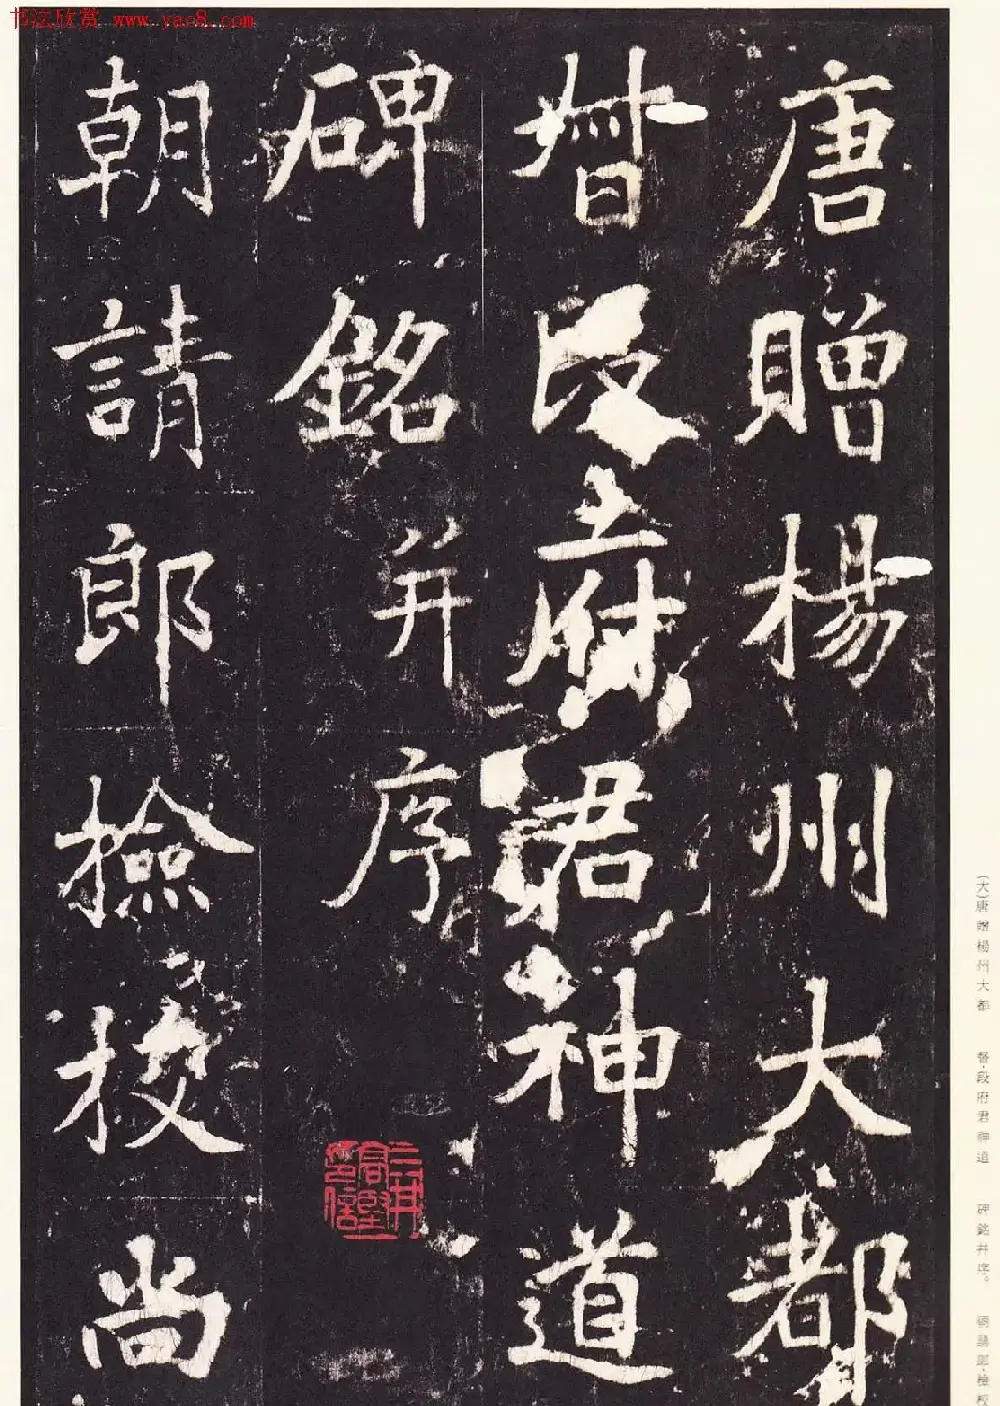 书法欣赏 www.yac8.com
唐贈楊州大都
督段府君神道
碑銘并序
朝請郎檢校尚
(大)唐贈楊州大都 督·段府君神道 碑銘并序。 朝請郎·檢校